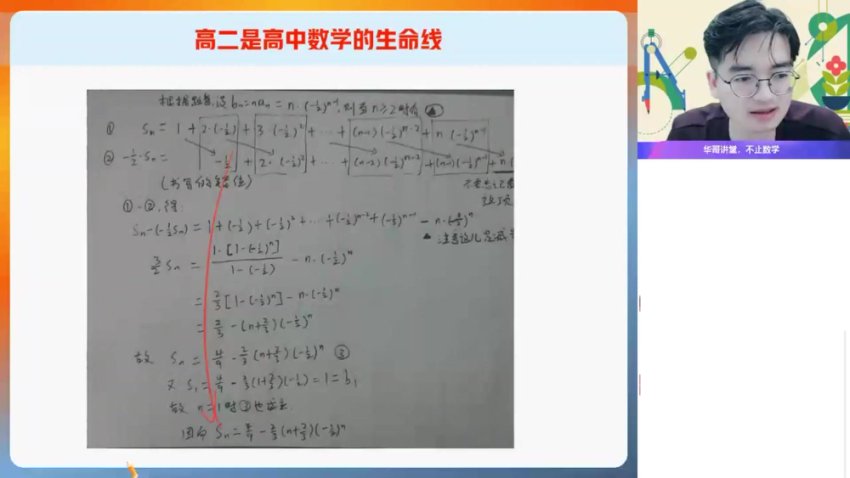 高二是高中数学的生命线
华哥讲堂，不止数学
根据题意，设 bₙ=naₙ = n·(-½)ⁿ⁻¹, 则当 n≥2时有
① Sₙ = 1 + 2·(-½) + 3·(-½)² + ··· + (n-1)(-½)ⁿ⁻² + n·(-½)ⁿ⁻¹
② -½·Sₙ = -½ + 2·(-½)² + ··· + (n-2)(-½)ⁿ⁻² + (n-1)(-½)ⁿ⁻¹ + n·
①-②,得
Sₙ-(-½Sₙ) = 1+(-½)+(-½)²+ ··· +(-½)ⁿ⁻²+(-½)ⁿ⁻¹ - n·(-½)ⁿ
▲ 注意这儿是减
3/2 Sₙ = 1·[1-(-½)ⁿ] / 1-(-½) - n·(-½)ⁿ
= ⅔[1-(-½)ⁿ] - n·(-½)ⁿ
= ⅔ - (n+⅔)(-½)ⁿ
故 Sₙ = 4/9 - ⅔(n+⅔)(-½)ⁿ ③
又 S₁ = 4/9 - ⅔(1+⅔)(-½) = 1 = b₁
故 n=1时③也成立
因而 Sₙ = 4/9 - ⅔(n+⅔)(-½)ⁿ